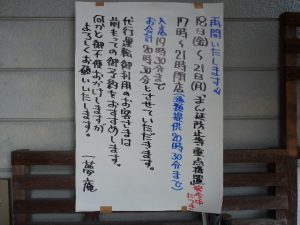 再開いたします
18日(金)〜21日(月)まで延防止等重点措置発令中
17時〜21時閉店(酒類提供20時30分まで)
入店19時30分まで
お会計20時30分とさせていただきます。
代行運転御利用のお客さまは
前もっての御予約をおすすめします。
何かと御不便おかけしますが
よろしくお願いいたします。
一夢庵